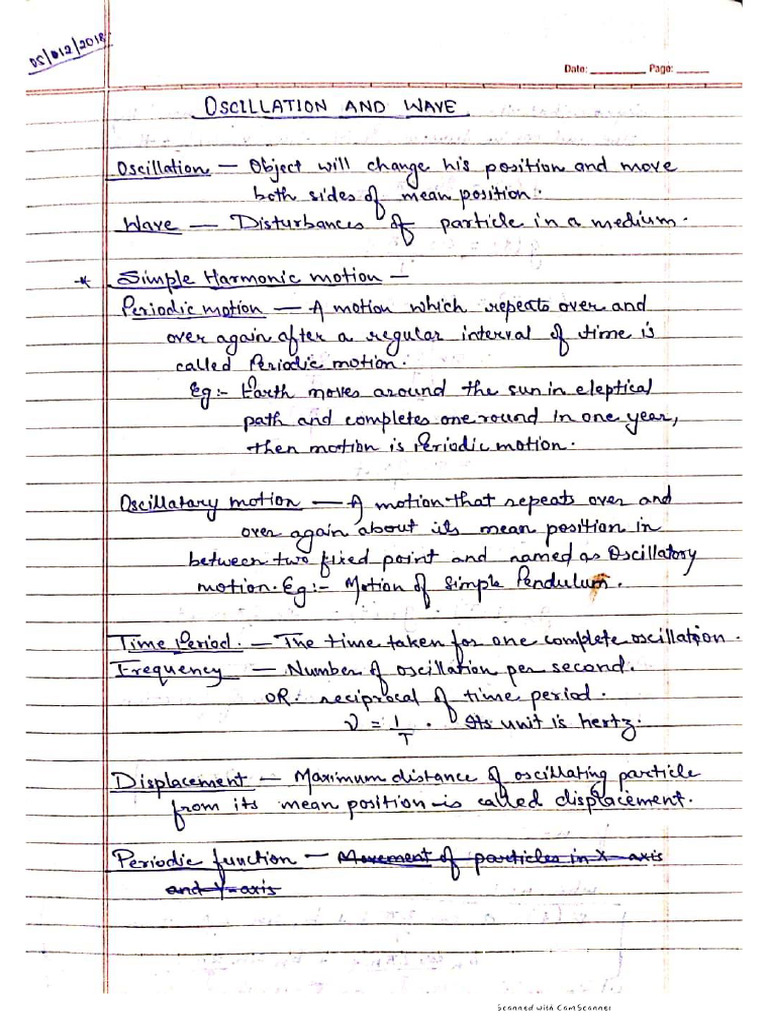 05/012/2018
Date: ________ Page: _____
OSCILLATION AND WAVE
Oscillation — Object will change his position and move
both sides of mean position.
Wave — Disturbances of particle in a medium.
* Simple Harmonic motion —
Periodic motion — A motion which repeats over and
over again after a regular interval of time is
called Periodic motion.
Eg:- Earth moves around the sun in eleptical
path and completes one round in one year,
then motion is Periodic motion.
Oscillatary motion — A motion that repeats over and
over again about its mean position in
between two fixed point and named as Oscillatory
motion. Eg:- Motion of Simple Pendulum.
Time Period. — The time taken for one complete oscillation.
Frequency — Number of oscillation per second.
OR. reciprocal of time period.
ν = 1/T . Its unit is hertz.
Displacement — Maximum distance of oscillating particle
from its mean position is called displacement.
Periodic function — Movement of particles in X-axis
and Y-axis
Scanned with CamScanner